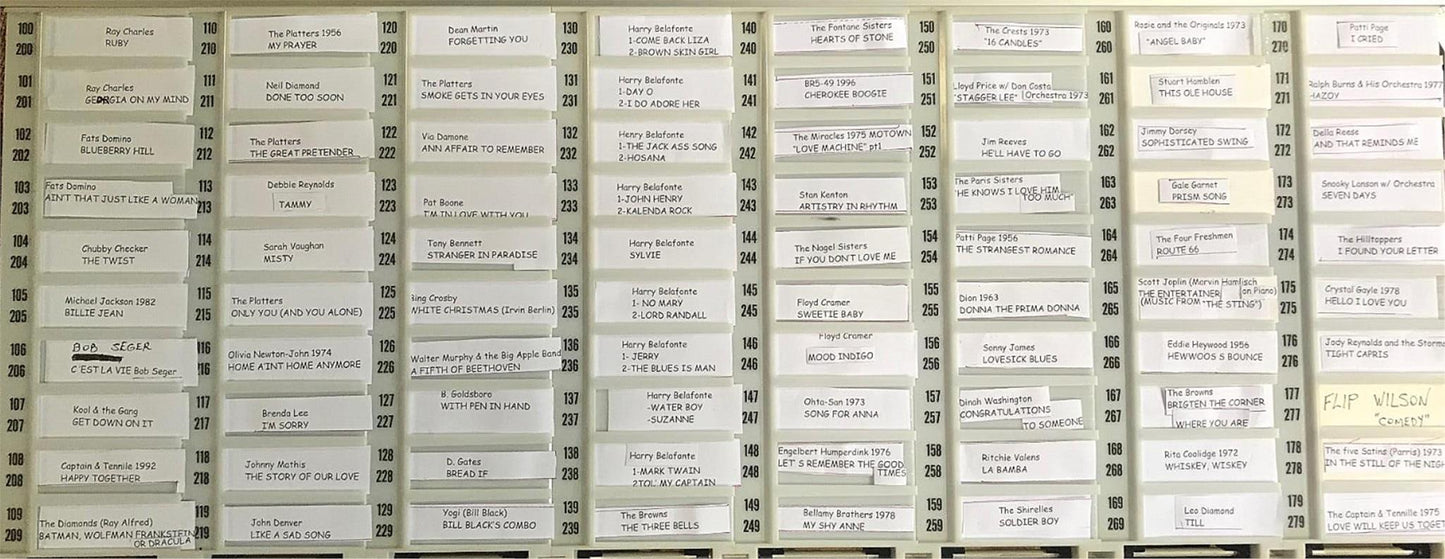 100
200
Ray Charles
RUBY
101
201
Ray Charles
GEORGIA ON MY MIND
102
202
Fats Domino
BLUEBERRY HILL
103
203
Fats Domino
AIN'T THAT JUST LIKE A WOMAN
104
204
Chubby Checker
THE TWIST
105
205
Michael Jackson 1982
BILLIE JEAN
106
206
BOB SEGER
C'EST LA VIE Bob Seger
107
207
Kool & the Gang
GET DOWN ON IT
108
208
Captain & Tennile 1992
HAPPY TOGETHER
109
209
The Diamonds (Ray Alfred)
BATMAN, WOLFMAN FRANKSTEIN
OR DRACULA
110
210
The Platters 1956
MY PRAYER
111
211
Neil Diamond
DONE TOO SOON
112
212
The Platters
THE GREAT PRETENDER
113
213
Debbie Reynolds
TAMMY
114
214
Sarah Vaughan
MISTY
115
215
The Platters
ONLY YOU (AND YOU ALONE)
116
216
Olivia Newton-John 1974
HOME A'INT HOME ANYMORE
117
217
Brenda Lee
I'M SORRY
118
218
Johnny Mathis
THE STORY OF OUR LOVE
119
219
John Denver
LIKE A SAD SONG
120
220
Dean Martin
FORGETTING YOU
121
221
The Platters
SMOKE GETS IN YOUR EYES
122
222
Via Damone
ANN AFFAIR TO REMEMBER
123
223
Pat Boone
I'M IN LOVE WITH YOU
124
224
Tony Bennett
STRANGER IN PARADISE
125
225
Bing Crosby
WHITE CHRISTMAS (Irvin Berlin)
126
226
Walter Murphy & the Big Apple Band
A FIFTH OF BEETHOVEN
127
227
B. Goldsboro
WITH PEN IN HAND
128
228
D. Gates
BREAD IF
129
229
Yogi (Bill Black)
BILL BLACK'S COMBO
130
230
Harry Belafonte
1-COME BACK LIZA
2-BROWN SKIN GIRL
131
231
Harry Belafonte
1-DAY O
2-I DO ADORE HER
132
232
Henry Belafonte
1-THE JACK ASS SONG
2-HOSANA
133
233
Harry Belafonte
1-JOHN HENRY
2-KALENDA ROCK
134
234
Harry Belafonte
SYLVIE
135
235
Harry Belafonte
1- NO MARY
2-LORD RANDALL
136
236
Harry Belafonte
1- JERRY
2-THE BLUES IS MAN
137
237
Harry Belafonte
-WATER BOY
-SUZANNE
138
238
Harry Belafonte
1-MARK TWAIN
2TOL' MY CAPTAIN
139
239
The Browns
THE THREE BELLS
140
240
The Fontane Sisters
HEARTS OF STONE
141
241
BR5-49 1996
CHEROKEE BOOGIE
142
242
The Miracles 1975 MOTOWN
"LOVE MACHINE" pt1
143
243
Stan Kenton
ARTISTRY IN RHYTHM
144
244
The Nagel Sisters
IF YOU DON'T LOVE ME
145
245
Floyd Cramer
SWEETIE BABY
146
246
Floyd Cramer
MOOD INDIGO
147
247
Ohta-San 1973
SONG FOR ANNA
148
248
Engelbert Humperdink 1976
LET'S REMEMBER THE GOOD
TIMES
149
249
Bellamy Brothers 1978
MY SHY ANNE
150
250
The Crests 1973
"16 CANDLES"
151
251
Lloyd Price w/ Don Costa
"STAGGER LEE" Orchestra 1973
152
252
Jim Reeves
HE'LL HAVE TO GO
153
253
The Paris Sisters
"HE KNOWS I LOVE HIM
TOO MUCH"
154
254
Patti Page 1956
THE STRANGEST ROMANCE
155
255
Dion 1963
DONNA THE PRIMA DONNA
156
256
Sonny James
LOVESICK BLUES
157
257
Dinah Washington
CONGRATULATIONS
TO SOMEONE
158
258
Ritchie Valens
LA BAMBA
159
259
The Shirelles
SOLDIER BOY
160
260
Rosie and the Originals 1973
"ANGEL BABY"
161
261
Stuart Hamblen
THIS OLE HOUSE
162
262
Jimmy Dorsey
SOPHISTICATED SWING
163
263
Gale Garnet
PRISM SONG
164
264
The Four Freshmen
ROUTE 66
165
265
Scott Joplin (Marvin Hamlisch
on Piano)
THE ENTERTAINER
(MUSIC FROM "THE STING")
166
266
Eddie Heywood 1956
HEWWOOS S BOUNCE
167
267
The Browns
BRIGTEN THE CORNER
WHERE YOU ARE
168
268
Rita Coolidge 1972
WHISKEY, WISKEY
169
269
Leo Diamond
TILL
170
270
Patti Page
I CRIED
171
271
Ralph Burns & His Orchestra 1977
HAZOY
172
272
Della Reese
AND THAT REMINDS ME
173
273
Snooky Lanson w/ Orchestra
SEVEN DAYS
174
274
The Hilltoppers
I FOUND YOUR LETTER
175
275
Crystal Gayle 1978
HELLO I LOVE YOU
176
276
Jody Reynolds and the Storms
TIGHT CAPRIS
177
277
FLIP WILSON
"COMEDY"
178
278
The five Satins (Parris) 1973
IN THE STILL OF THE NIGH
179
279
The Captain & Tennille 1975
LOVE WILL KEEP US TOGET